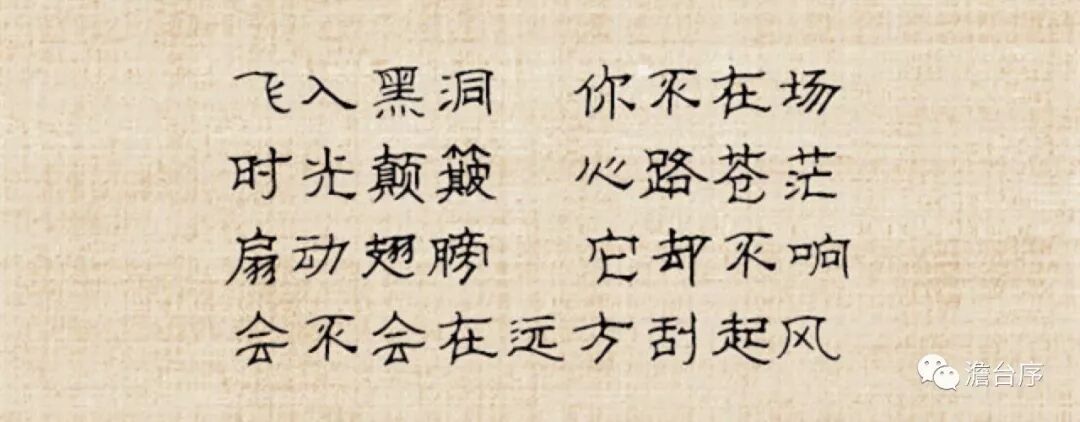 飞入黑洞 你不在场
时光颠簸 心路苍茫
扇动翅膀 它却不响
会不会在远方刮起风
澹台序